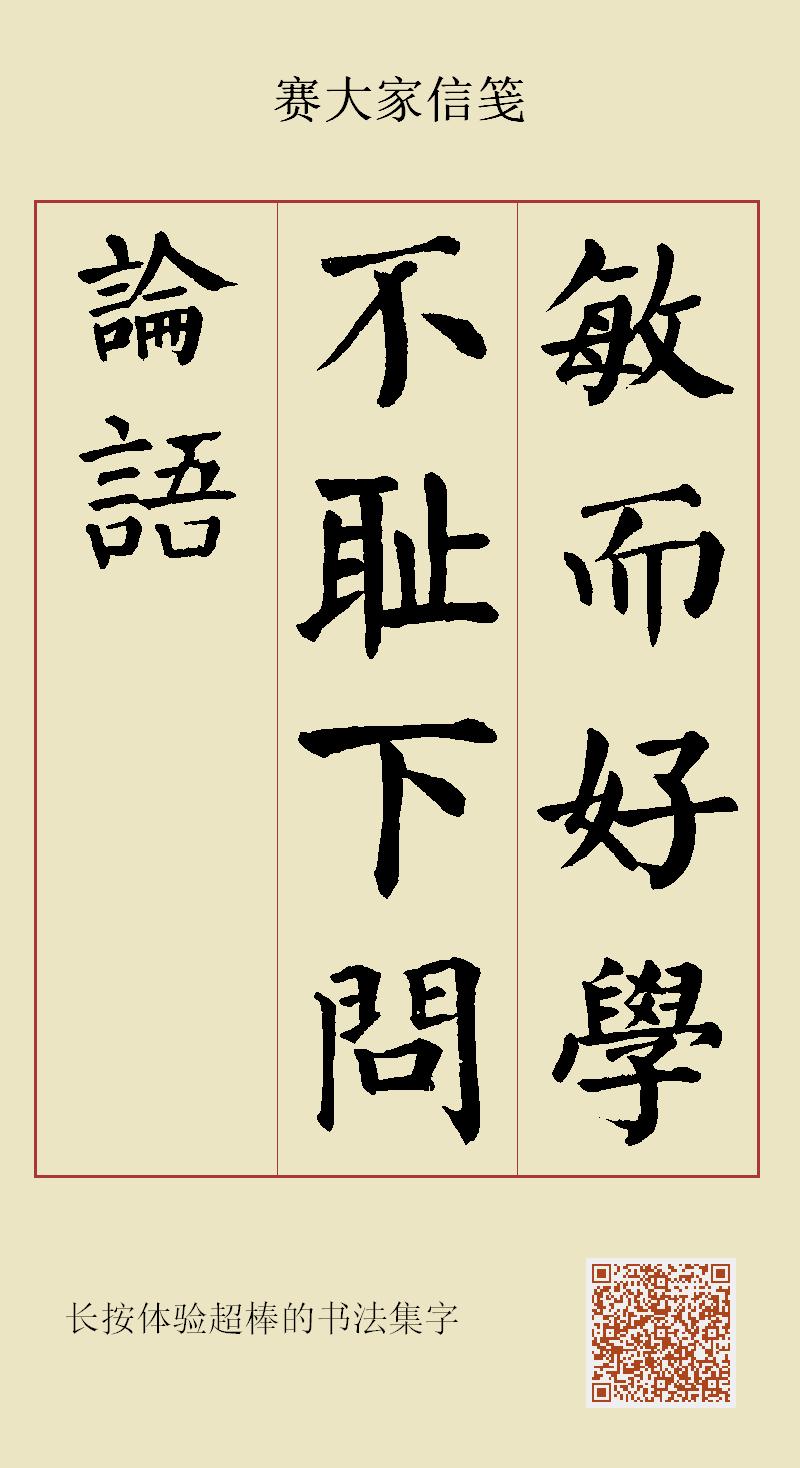 赛大家信笺
敏而好學
不耻下問
論語
长按体验超棒的书法集字